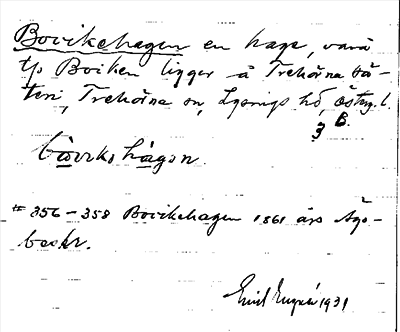 Bovikehagen en hage, vara
tp Boviken ligger å Trehörna sä-
teri, Trehörna sn, Lysings hd, Östg. l.
3 B.
bòviks hágen
# 356-358 Bovikehagen 1861 års Ägo-
beskr.
Emil 1931